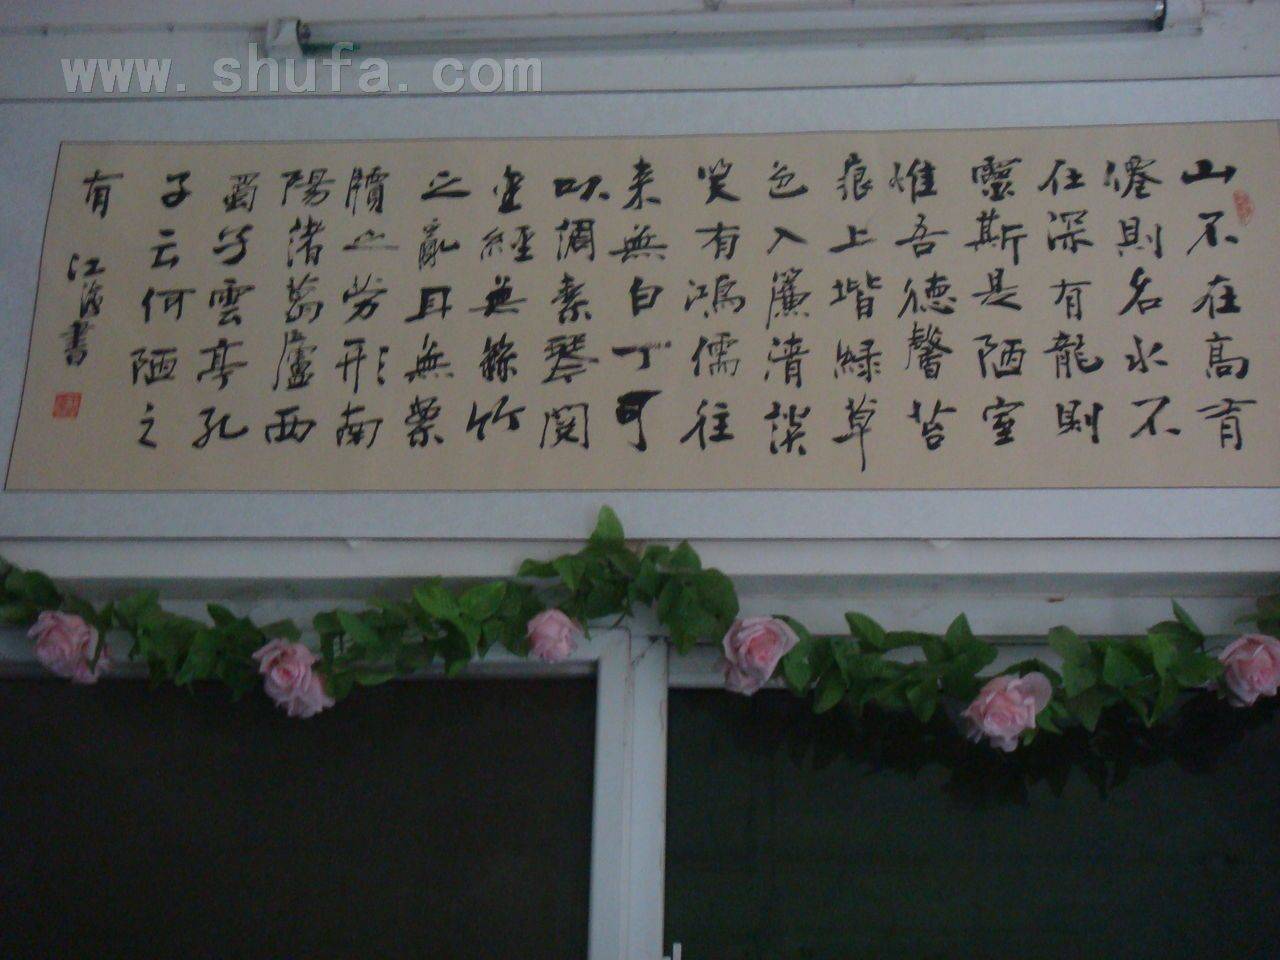 www.shufa.com
山不在高有
僊則名水不
在深有龍則
靈斯是陋室
惟吾德馨苔
痕上堦緑草
色入簾清談
笑有鴻儒往
来無白丁可
以調素琴閱
金經無絲竹
之亂耳無案
牘之勞形南
陽諸葛廬西
蜀子雲亭孔
子云何陋之
有
江海書